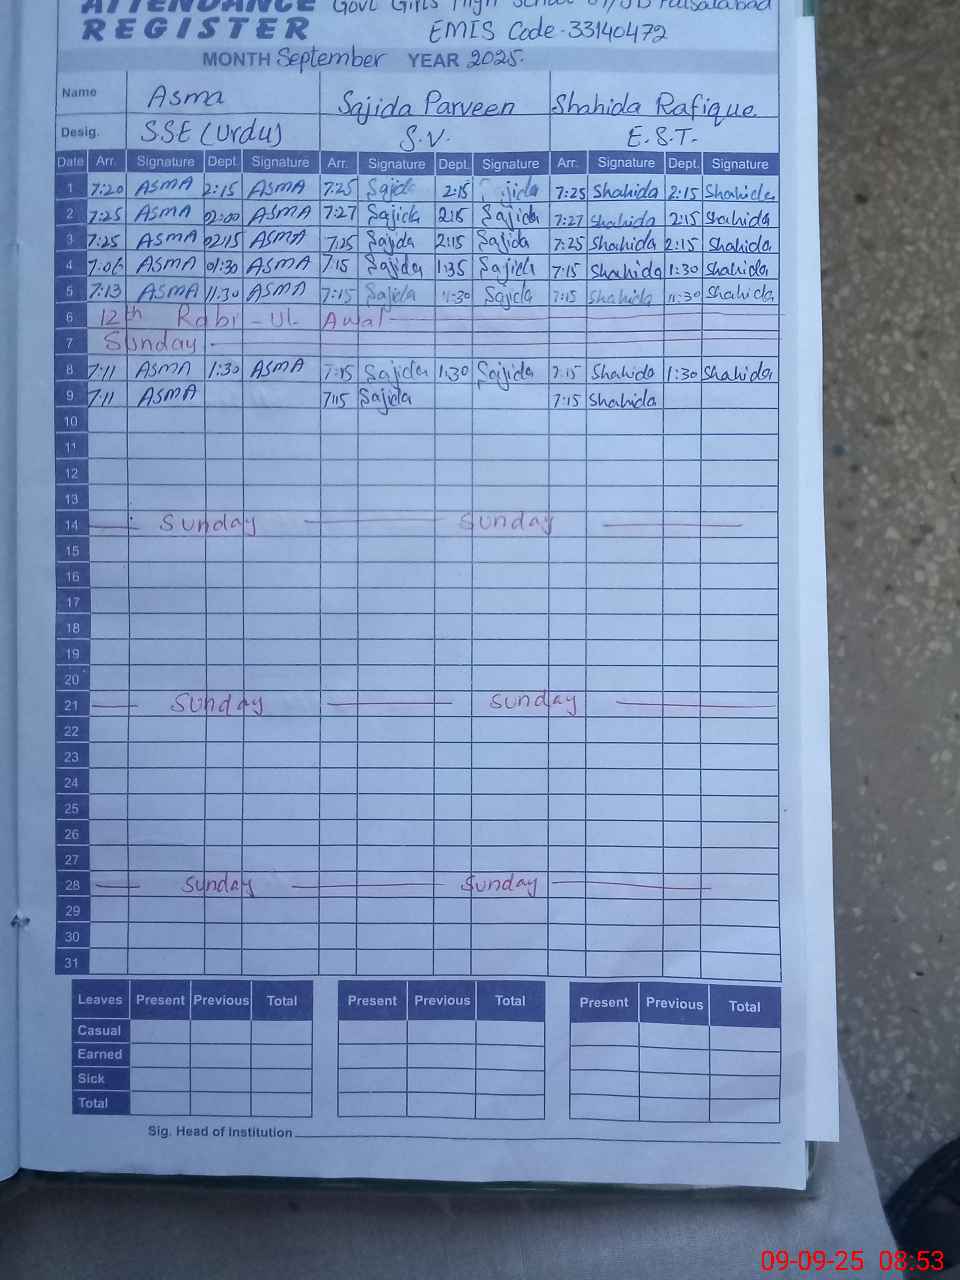 ATTENDANCE Govt Girls High School
REGISTER EMIS Code-33140472
MONTH September YEAR 2025.
Name Asma Sajida Parveen Shahida Rafique
Desig. SSE (Urdu) S.V. E.S.T.
Date Arr. Signature Dept. Signature Arr. Signature Dept. Signature Arr. Signature Dept. Signature
1 7:20 ASMA 2:15 ASMA 7:25 Sajida 2:15 Sajida 7:25 Shahida 2:15 Shahida
2 7:25 ASMA 02:00 ASMA 7:27 Sajida 2:15 Sajida 7:27 Shahida 2:15 Shahida
3 7:25 ASMA 02:15 ASMA 7:25 Sajida 2:15 Sajida 7:25 Shahida 2:15 Shahida
4 7:06 ASMA 01:30 ASMA 7:15 Sajida 1:35 Sajida 7:15 Shahida 1:30 Shahida
5 7:13 ASMA 11:30 ASMA 7:15 Sajida 11:30 Sajida 7:15 Shahida 11:30 Shahida
6 12th Rabi-Ul-Awal
7 Sunday
8 7:11 ASMA 1:30 ASMA 7:15 Sajida 1:30 Sajida 7:15 Shahida 1:30 Shahida
9 7:11 ASMA 7:15 Sajida 7:15 Shahida
10
11
12
13
14 Sunday Sunday
15
16
17
18
19
20
21 Sunday Sunday
22
23
24
25
26
27
28 Sunday Sunday
29
30
31
Leaves Present Previous Total Present Previous Total Present Previous Total
Casual
Earned
Sick
Total
Sig. Head of Institution
09-09-25 08:53